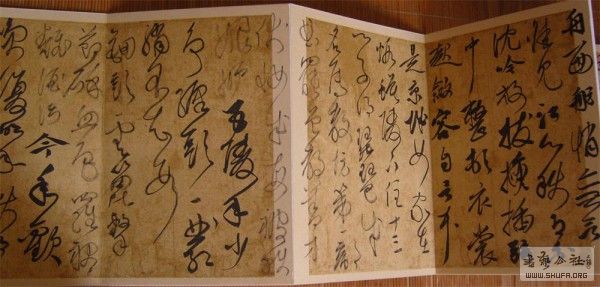 舟西船悄無言
惟見江心秋月白
沈吟放撥插絃
中整頓衣裳
起斂容自言本
是京城女家在
蝦蟆陵下住十三
學得琵琶成
名屬教坊第一部
曲罷曾教善才
伏妝成每被秋
娘妒五陵年少
爭纏頭一曲紅
綃不知數
鈿頭雲篦擊
節碎血色羅裙
翻酒污今年歡
笑復明年
WWW.SHUFA.ORG